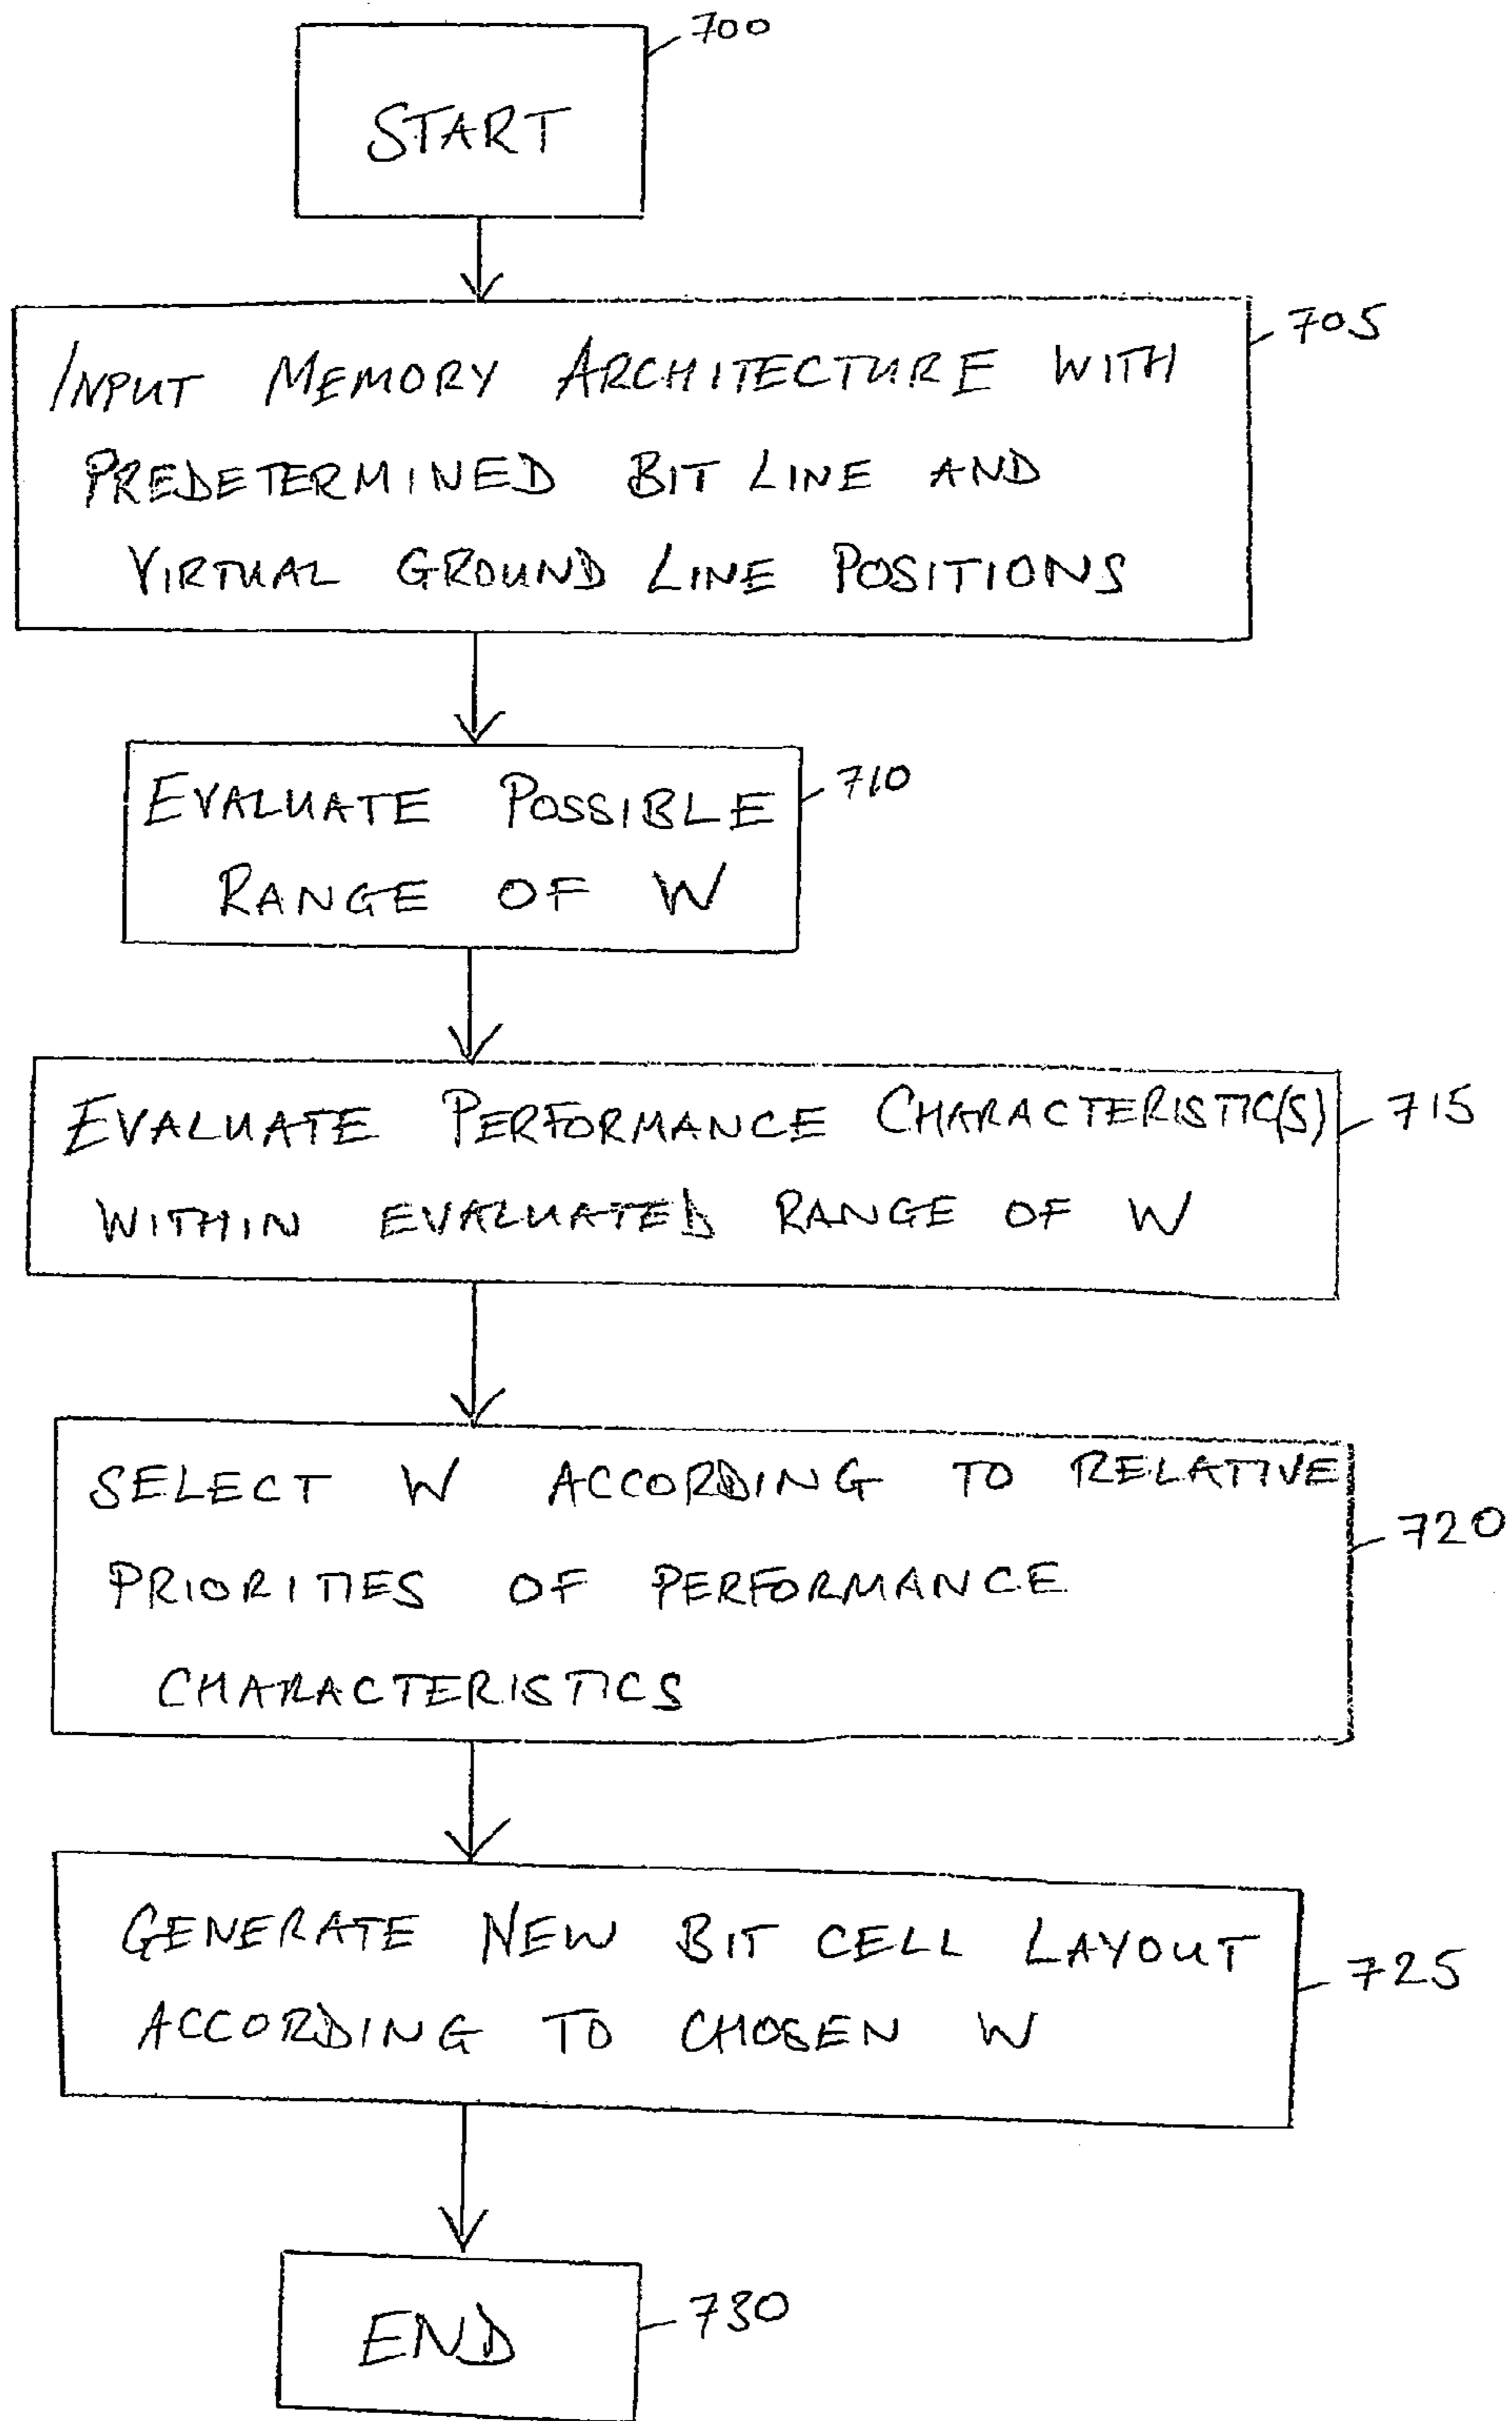 700
START
705
INPUT MEMORY ARCHITECTURE WITH
PREDETERMINED BIT LINE AND
VIRTUAL GROUND LINE POSITIONS
710
EVALUATE POSSIBLE
RANGE OF W
EVALUATE PERFORMANCE CHARACTERISTIC(S)
715
WITHIN EVALUATED RANGE OF W
SELECT W ACCORDING TO RELATIVE
720
PRIORITIES OF PERFORMANCE
CHARACTERISTICS
GENERATE NEW BIT CELL LAYOUT
725
ACCORDING TO CHOSEN W
730
END